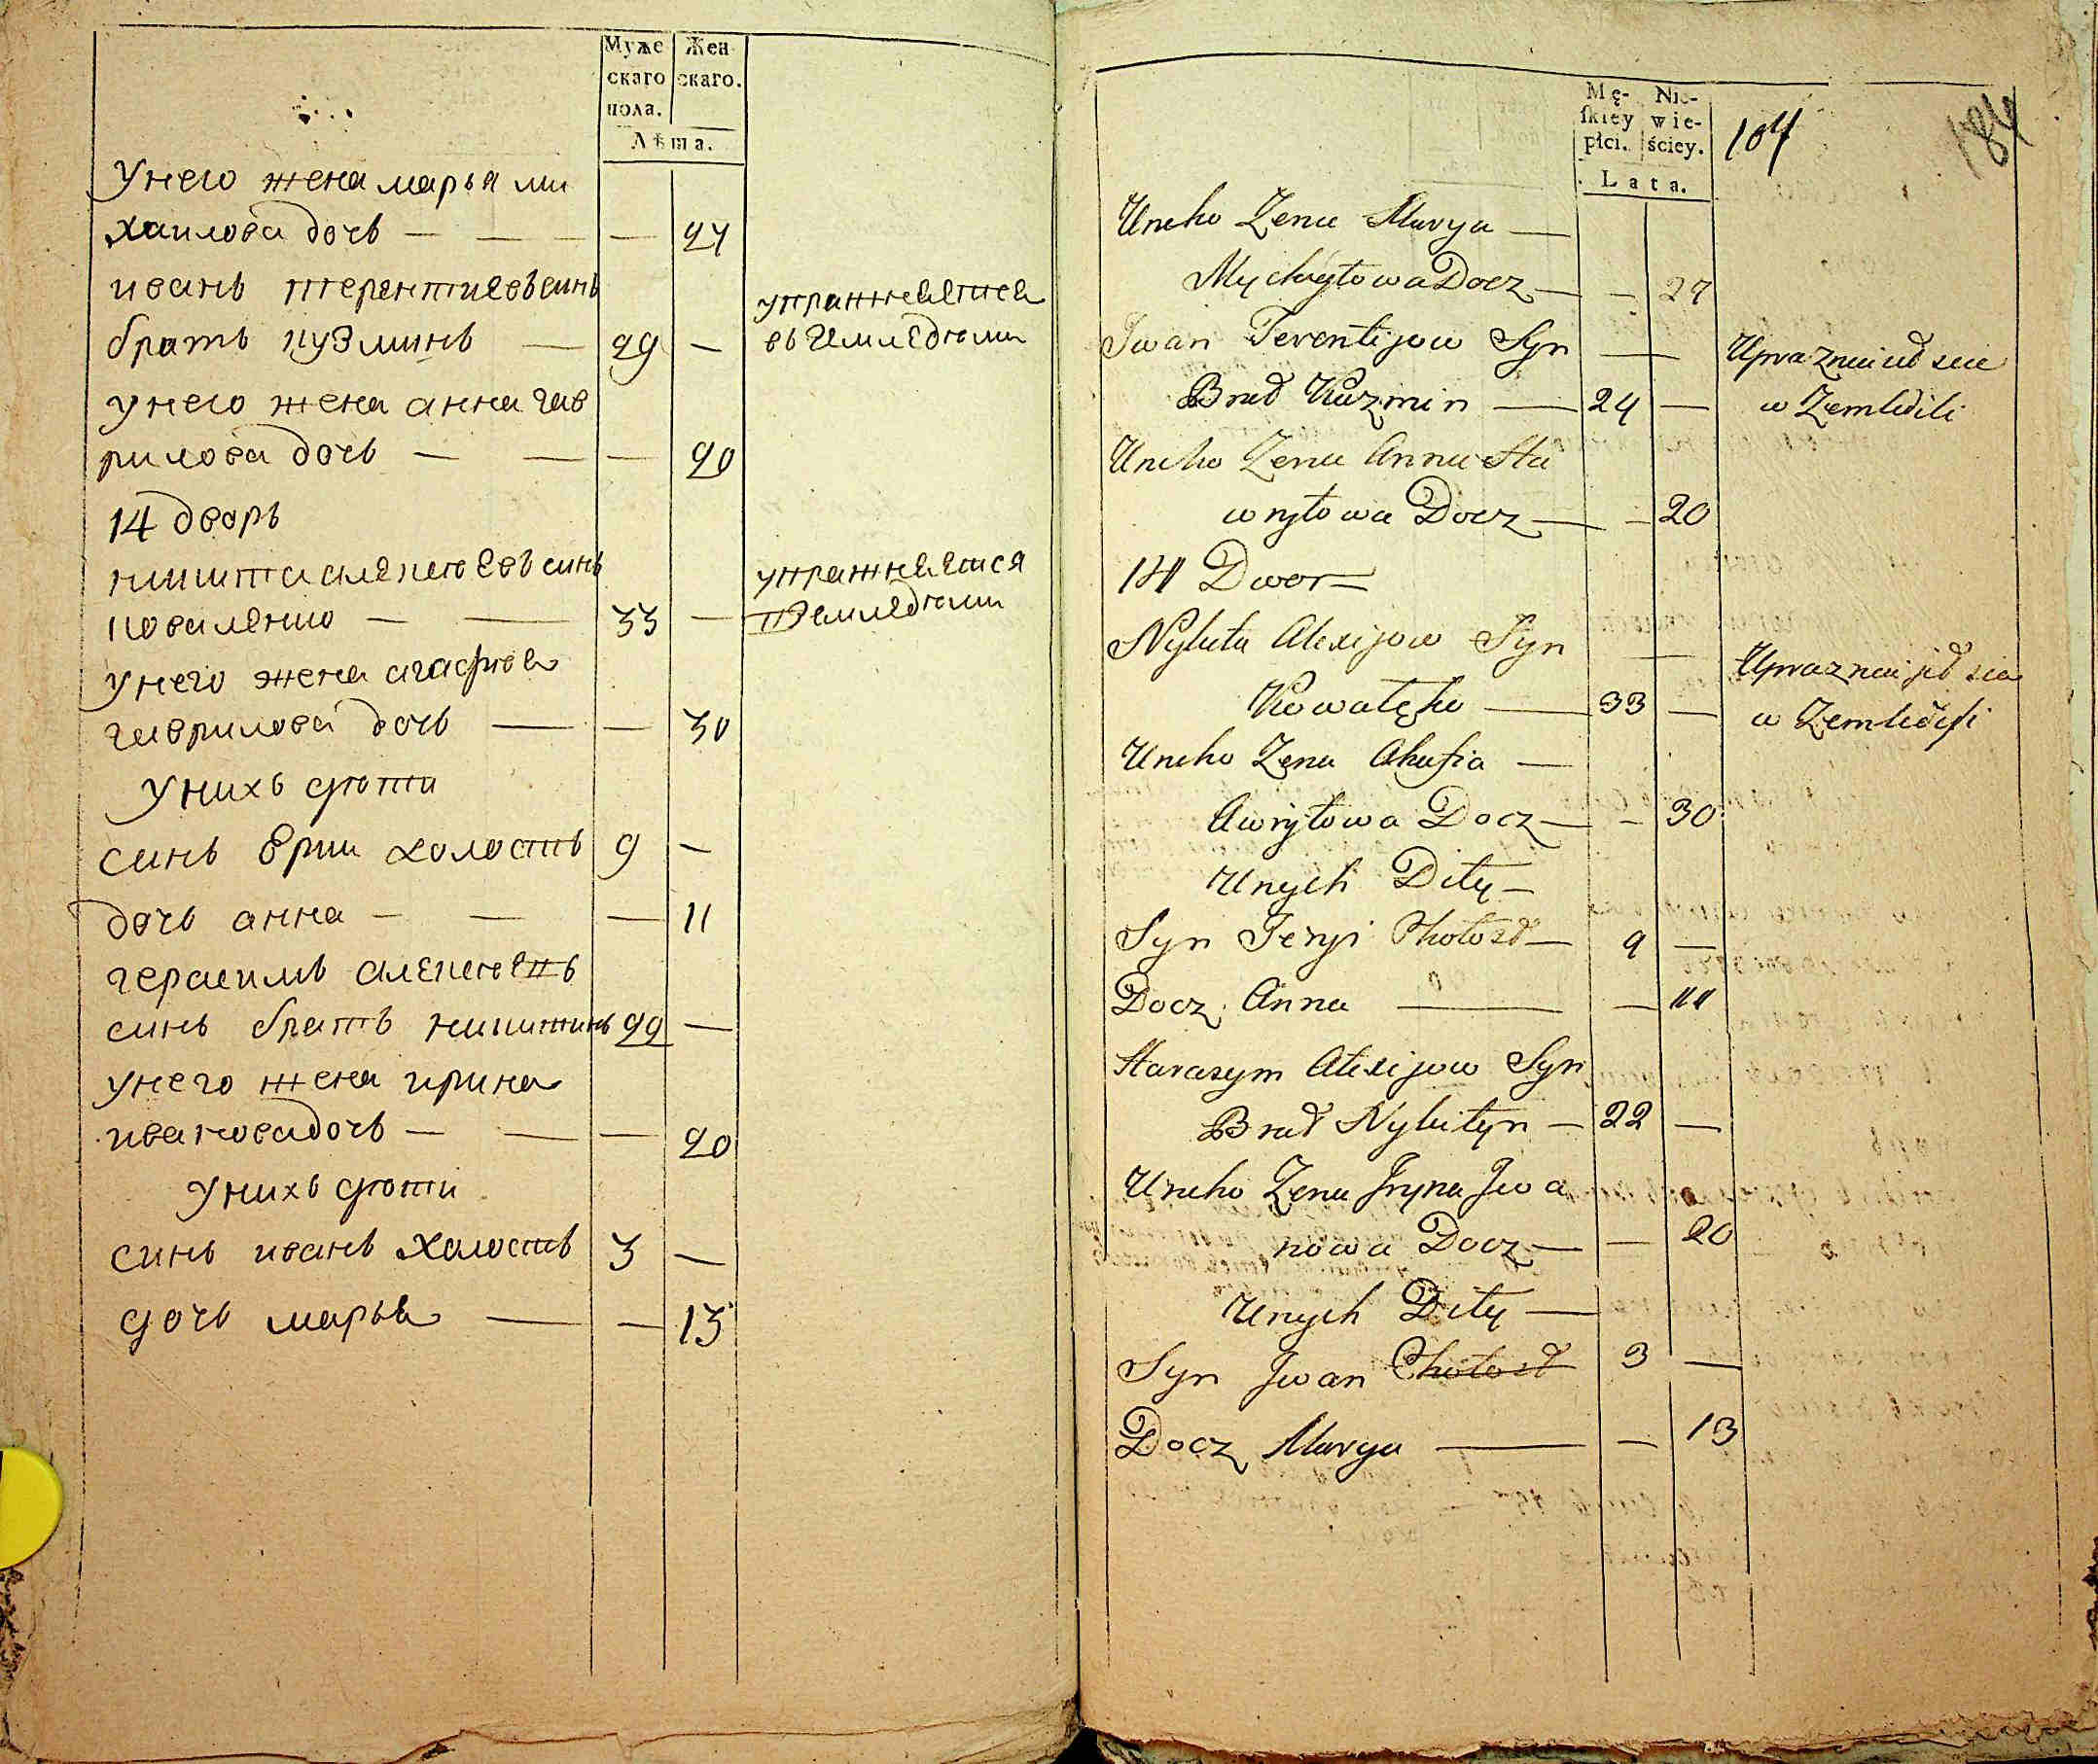 Муже
скаго
пола.
Жен
скаго.
Лѣта.
унего жена марья ми
хаилова дочь — — — — 27
иванъ терентиевъ синъ
братъ кузминъ — 29 —
упражняется
въ земледѣлии
унего жена анна гав
рилова дочь — — — 20
14 дворъ
никита алексѣевъ синъ
коваленко — — 33 —
упражняется
земледѣлии
унего жена агафия
гаврилова дочь — — 30
унихъ дѣти
синъ ерии холостъ 9 —
дочь анна — — — 11
герасимъ алексѣевъ
синъ братъ никитинъ 22 —
унего жена ирина
иванова дочь — — — 20
унихъ дѣти
синъ иванъ холостъ 3 —
дочь марья — — 13
Mę-
skiey
płci.
Nie-
wie-
ściey.
Lata.
104
184
Uneho Zena Marya —
Mychayłowa Docz — — 27
Jwan Terentijow Syn —
Brat Kuzmin — 24 —
Uprazniait sia
w Zemledili
Uneho Zena Anna Ha
wryłowa Docz — — 20
14 Dwor —
Nykita Alexijow Syn —
Kowalęko — 33 —
Uprazniajit sia
w Zemledili
Uneho Zena Ahafia —
Awryłowa Docz — — 30
Unych Dity —
Syn Jeryi Chołost — 9 —
Docz Anna — — 11
Harasym Alexijow Syn
Brat Nykityn — 22 —
Uneho Zena Jryna Jwa
nowa Docz — — 20
Unych Dity —
Syn Jwan Chołost 3 —
Docz Marya — — 13